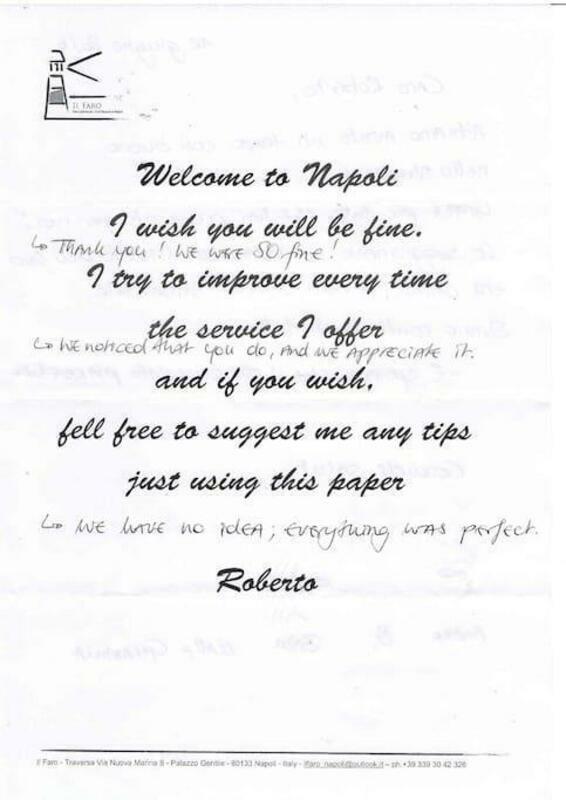 IL FARO
Welcome to Napoli
I wish you will be fine.
↳ THANK YOU! WE WERE SO fine!
I try to improve every time
the service I offer
↳ WE NOTICED THAT YOU DO, AND WE APPRECIATE IT.
and if you wish,
fell free to suggest me any tips
just using this paper
↳ WE HAVE NO IDEA; EVERYTHING WAS PERFECT.
Roberto
Il Faro - Traversa Via Nuova Marina 8 - Palazzo Gentile - 80133 Napoli - Italy - ilfaro_napoli@outlook.it – ph.+39 339 30 42 326